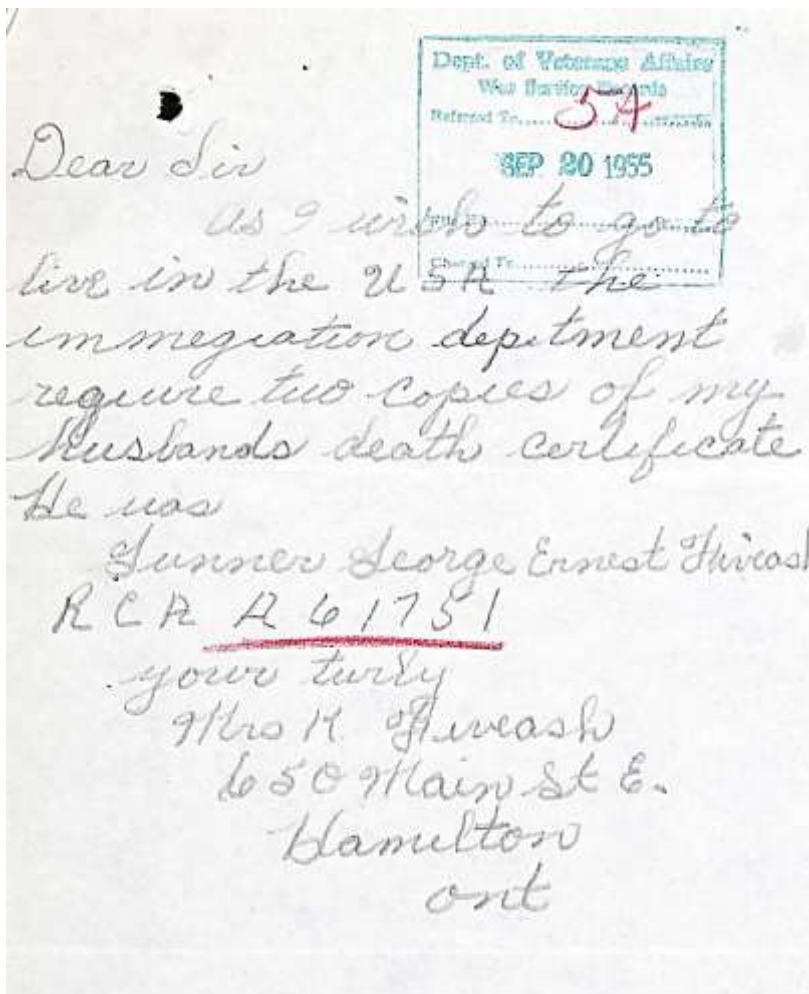 Dept. of Veterans Affairs
War Service Records
Referred To 54
SEP 20 1955
File No.
Charged To
Dear Sir
as I wish to go to
live in the USA the
immegration depitment
reguire two copies of my
husbands death certificate
He was
Gunner George Ernest Fiveash
RCA A61751
your turly
Mrs K Fiveash
650 Main St E.
Hamilton
ont